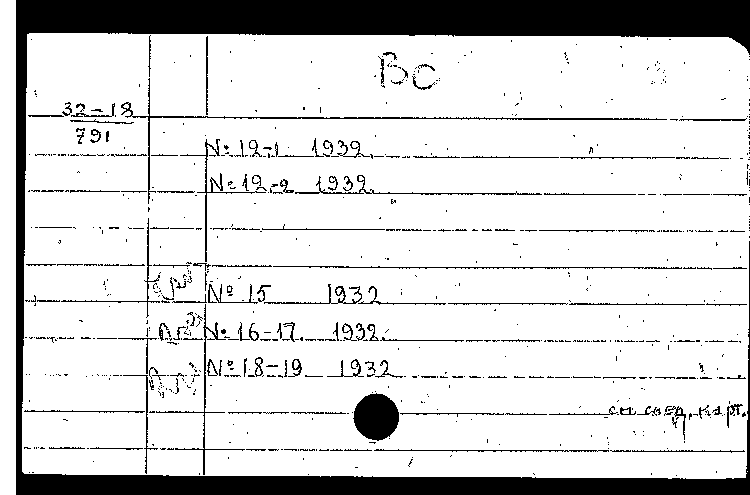 ВС
32-18
791
№ 12-1 1932.
№ 12-2 1932.
№ 15 1932
№ 16-17. 1932.
№ 18-19 1932
см след. карт.